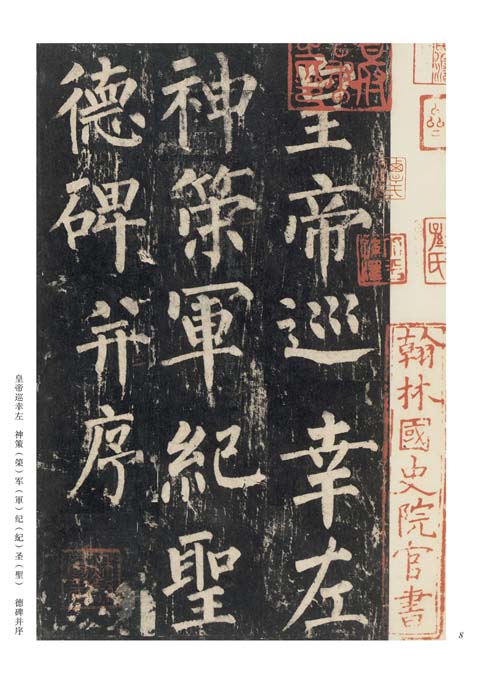 皇帝巡幸左
神策軍紀聖
德碑并序
翰林國史院官書
皇帝巡幸左 神策（䇿）军（軍）纪（紀）圣（聖） 德碑并序
8